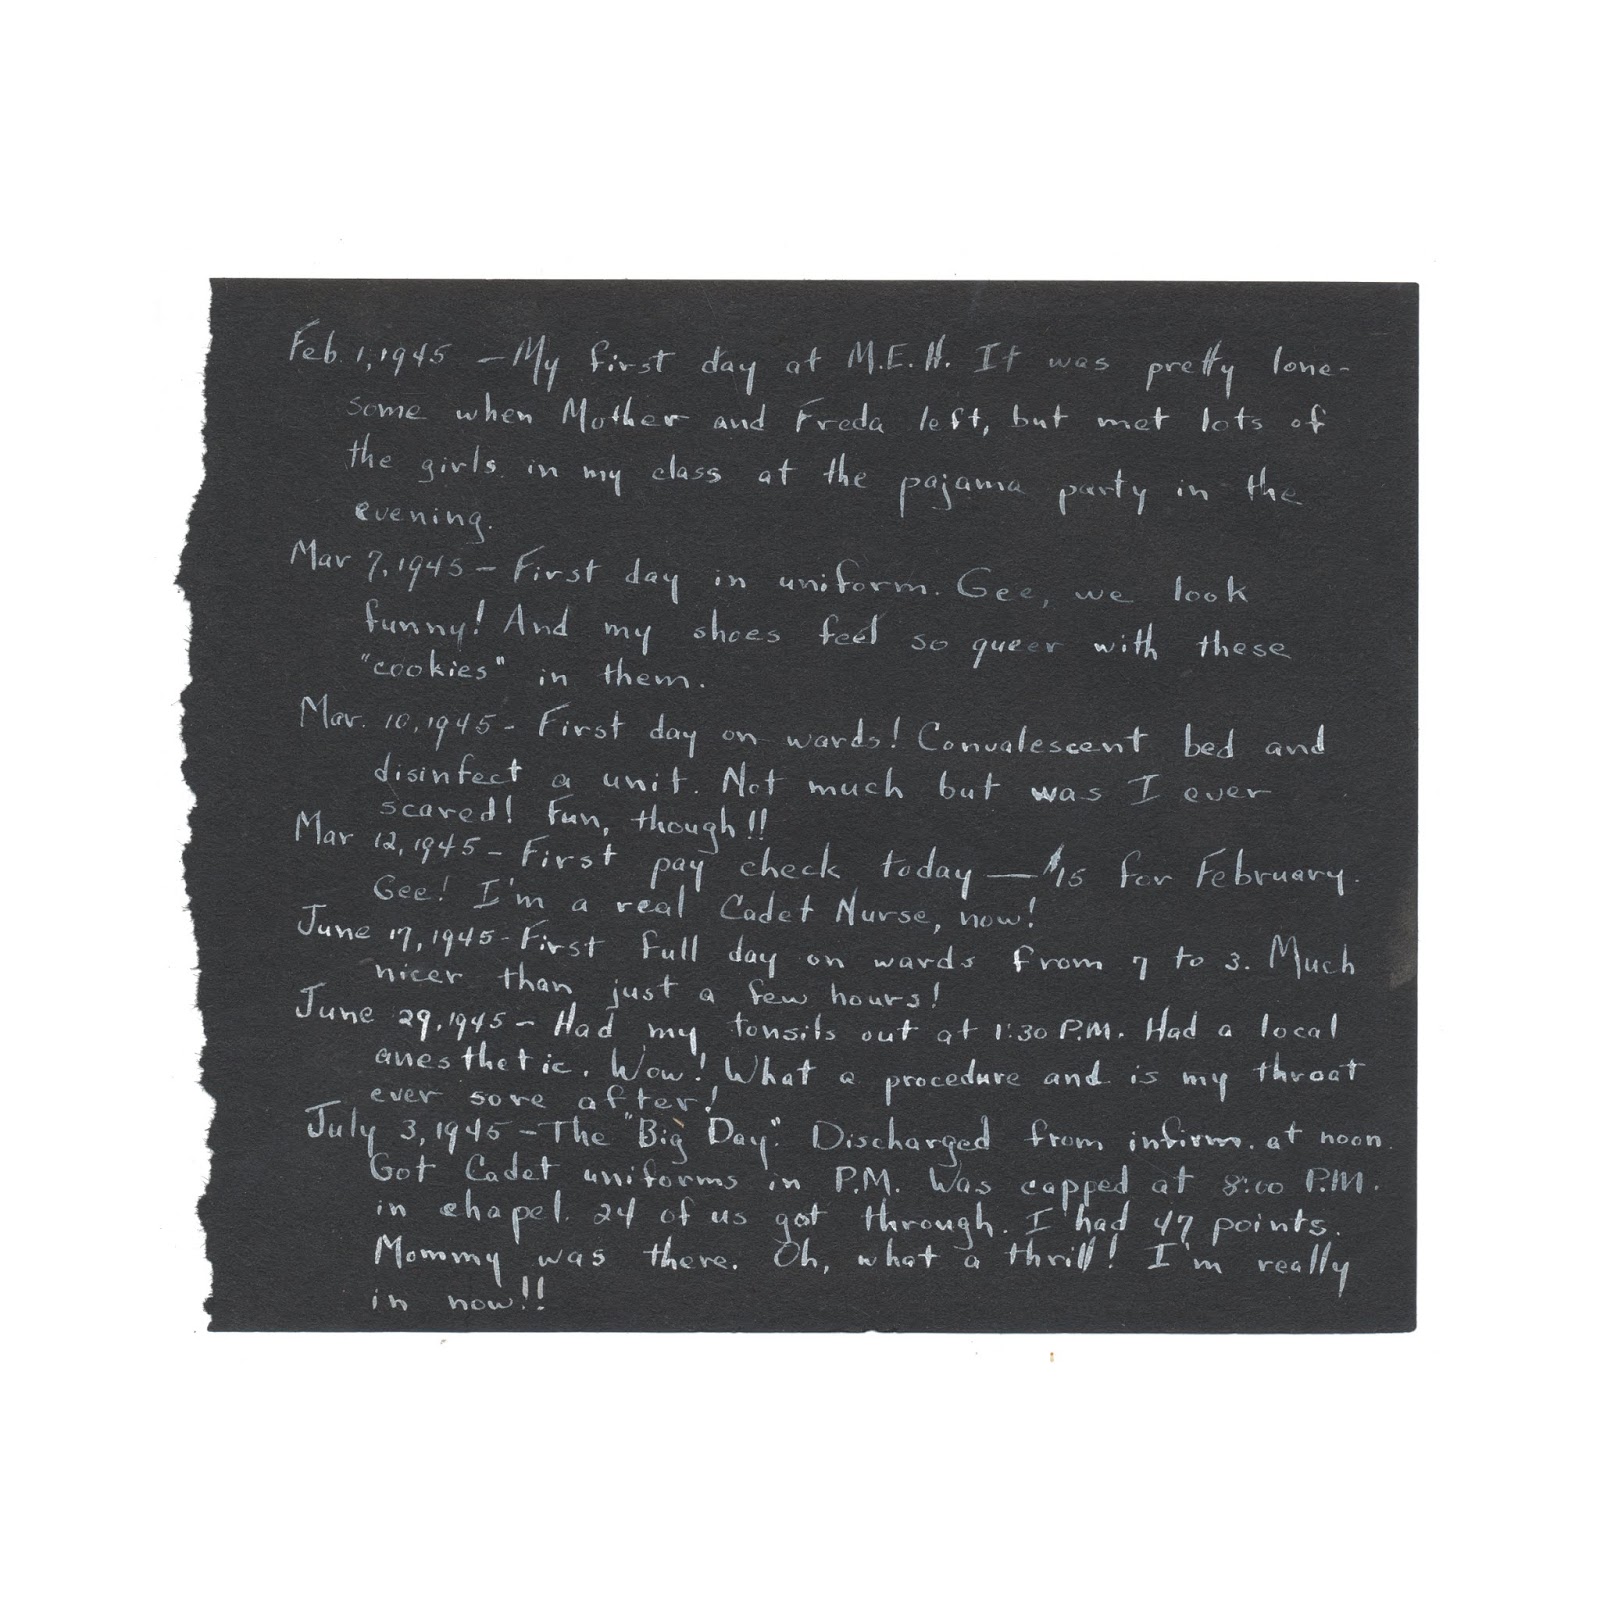 Feb. 1, 1945 - My first day at M.E.H. It was pretty lone-
some when Mother and Freda left, but met lots of
the girls in my class at the pajama party in the
evening.
Mar 7, 1945 - First day in uniform. Gee, we look
funny! And my shoes feel so queer with these
"cookies" in them.
Mar. 10, 1945 - First day on wards! Convalescent bed and
disinfect a unit. Not much but was I ever
scared! Fun, though!!
Mar 12, 1945 - First pay check today — $15 for February.
Gee! I'm a real Cadet Nurse, now!
June 17, 1945 - First full day on wards from 7 to 3. Much
nicer than just a few hours!
June 29, 1945 - Had my tonsils out at 1:30 P.M. Had a local
anesthetic. Wow! What a procedure and is my throat
ever sore after!
July 3, 1945 - The "Big Day". Discharged from infirm. at noon.
Got Cadet uniforms in P.M. Was capped at 8:00 P.M.
in chapel. 24 of us got through. I had 47 points.
Mommy was there. Oh, what a thrill! I'm really
in now!!